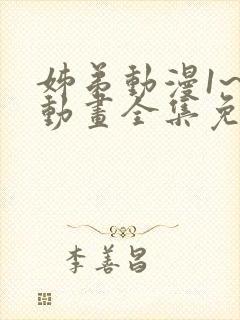 姊弟動漫1~
動畫全集免
李善昌